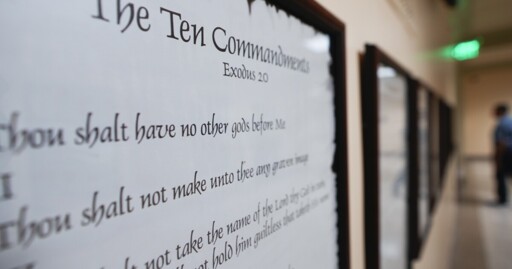 The Ten Commandments
Exodus 20
Thou shalt have no other gods before Me
II
Thou shalt not make unto thee any graven image
not take the name of the Lord thy God in vain
not hold him guiltless that